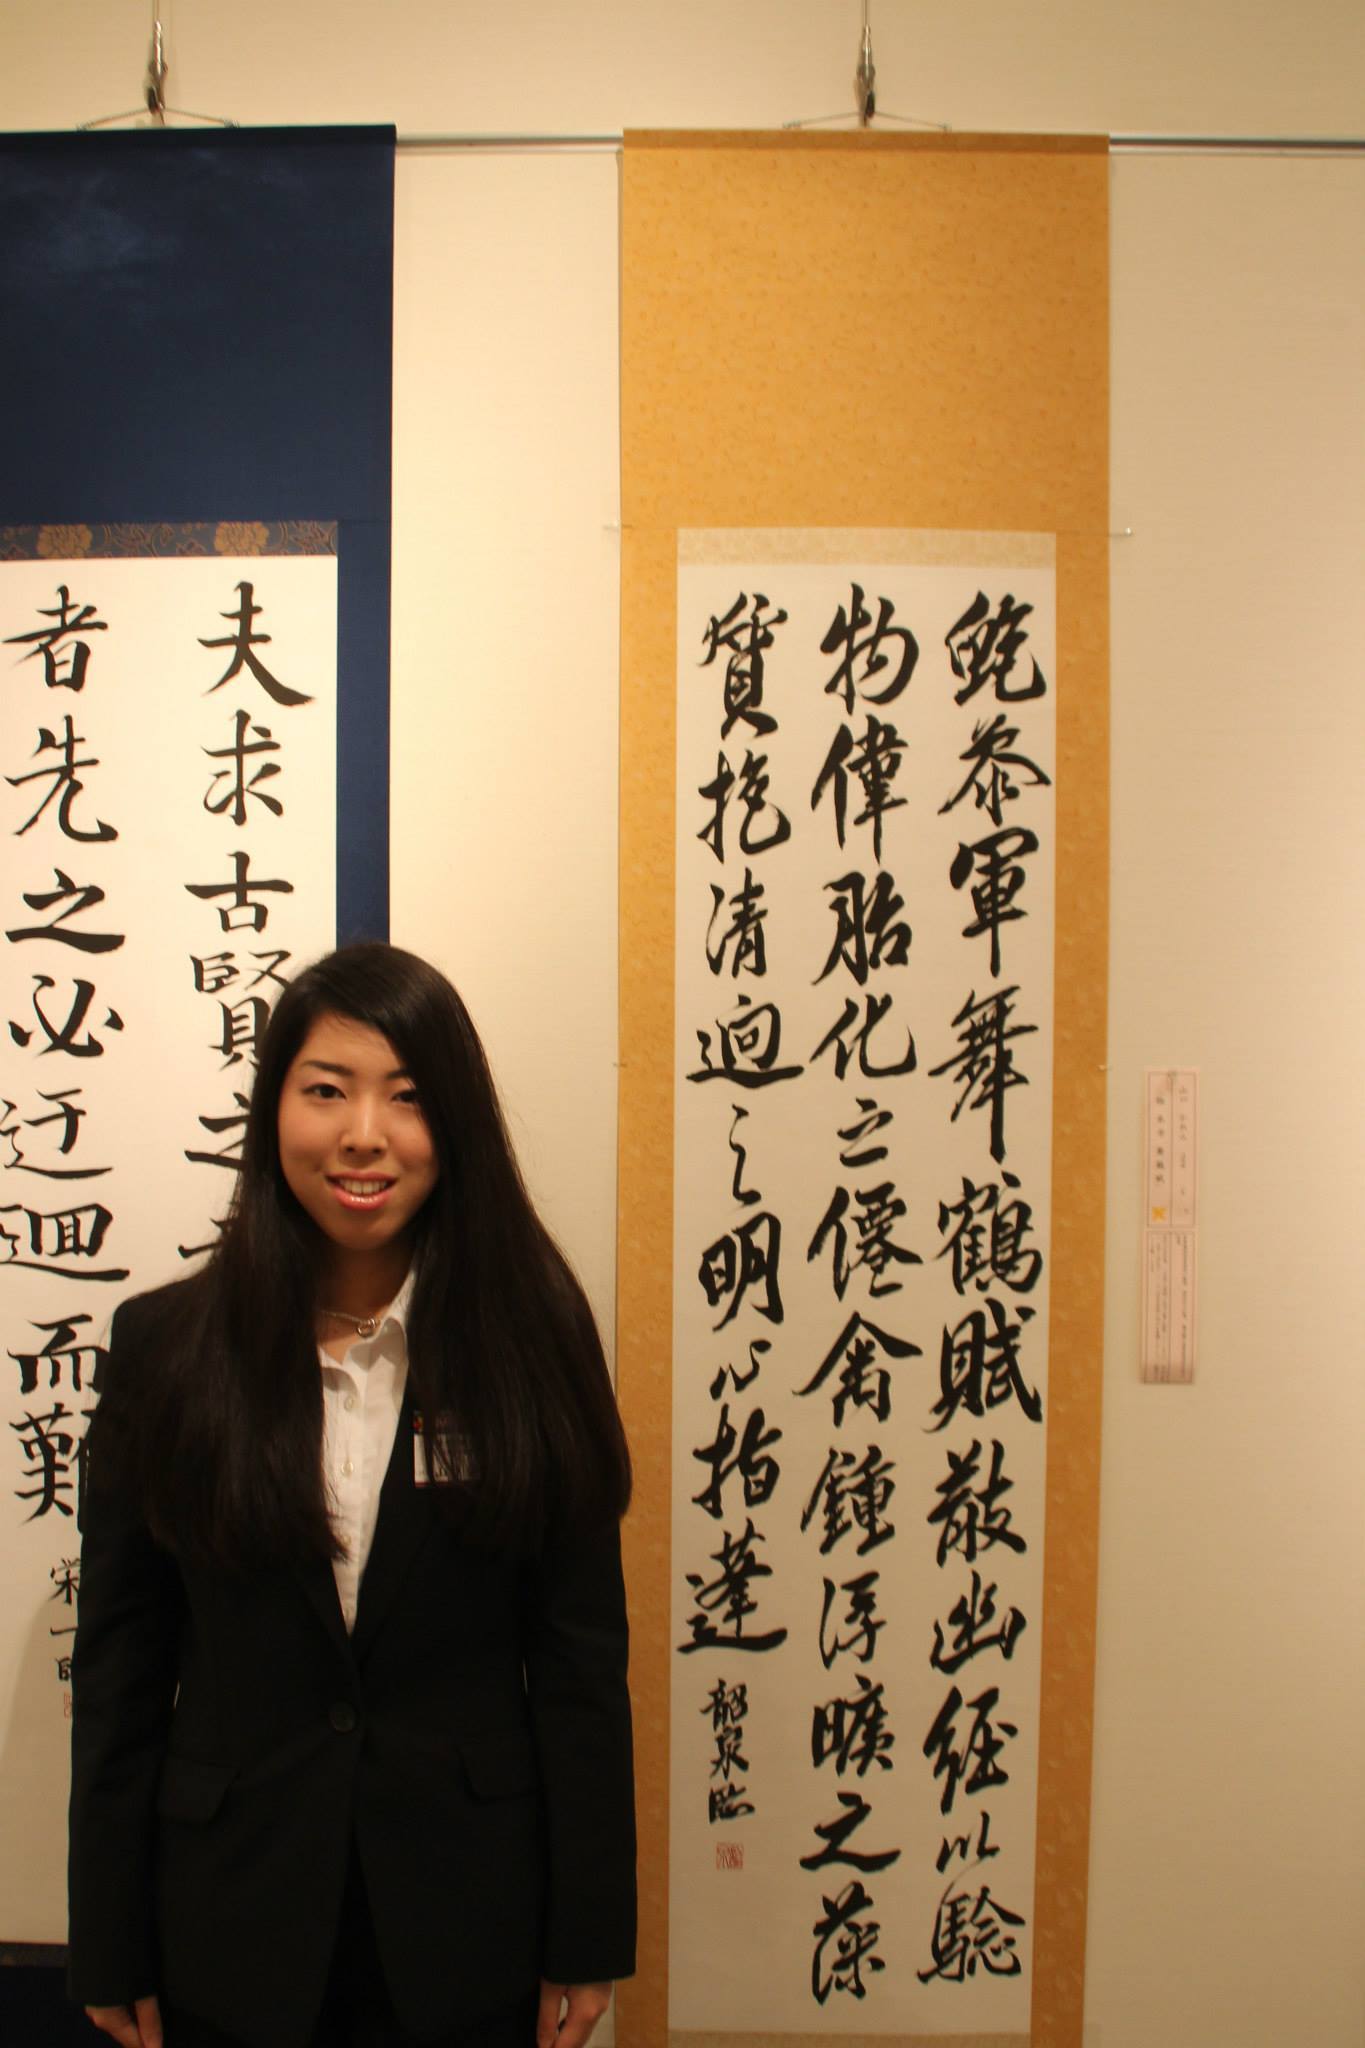 鮑叅軍舞鶴賦散幽經以驗
物偉胎化之僊禽鍾浮曠之藻
質抱清迥之明心指蓬
韶泉臨
夫求古賢之
者先之必迂迴而難
栄一臨